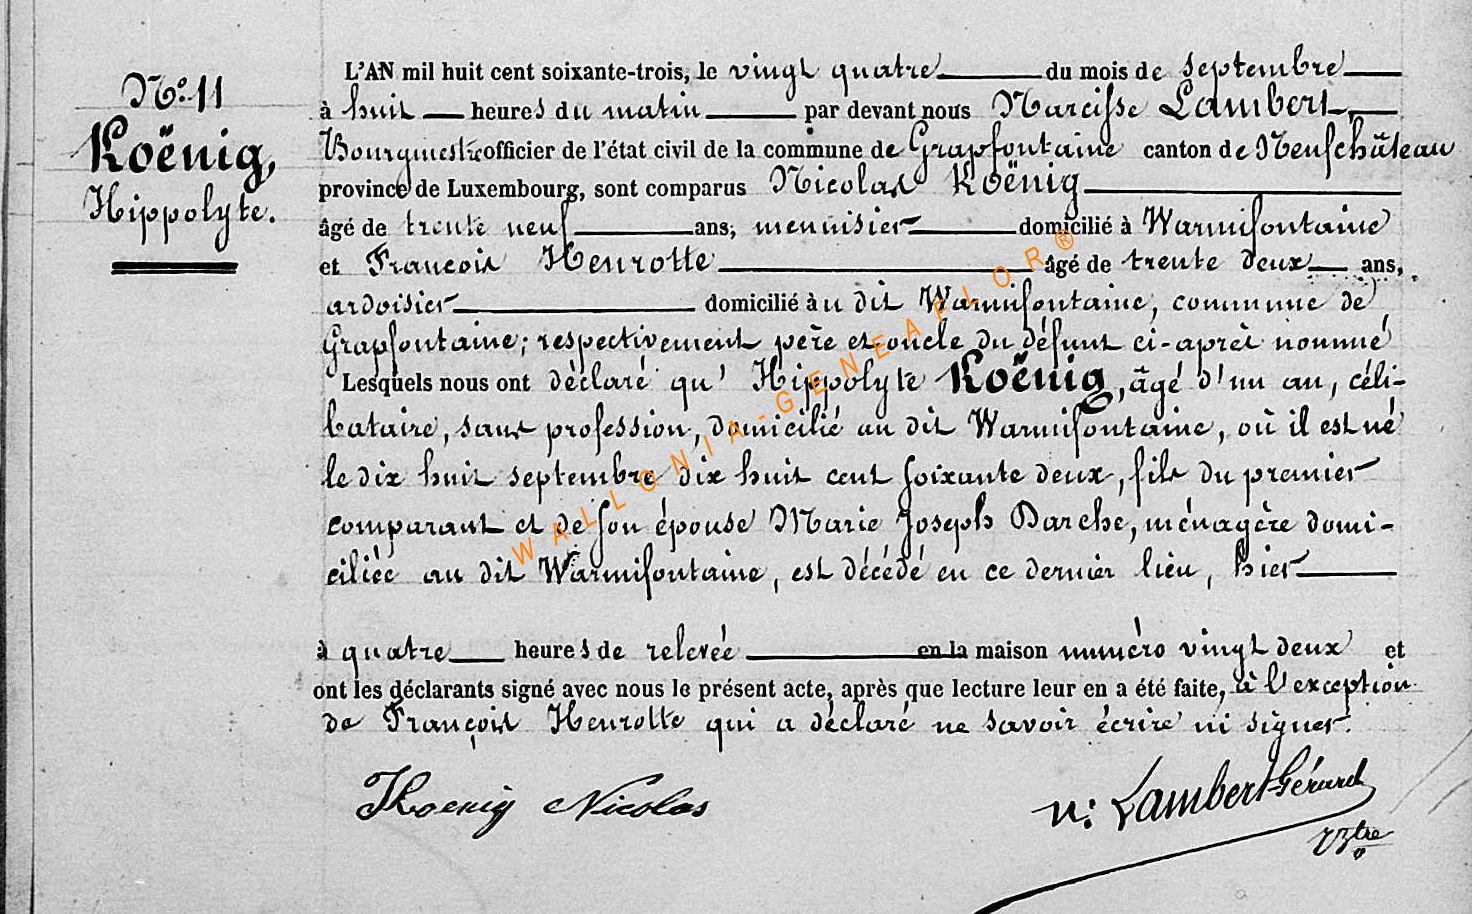 N° 11
Koënig,
Hippolyte.
L'AN mil huit cent soixante-trois, le vingt quatre du mois de septembre
à huit heures du matin par devant nous Narcisse Lambert,
Bourgmestre officier de l'état civil de la commune de Grapfontaine canton de Neufchâteau
province de Luxembourg, sont comparus Nicolas Koënig
âgé de trente neuf ans, menuisier domicilié à Warmifontaine
et François Henrotte âgé de trente deux ans,
ardoisier domicilié à u dit Warmifontaine, commune de
Grapfontaine; respectivement père et oncle du défunt ci-après nommé
Lesquels nous ont déclaré qu' Hippolyte Koënig, âgé d'un an, céli-
bataire, sans profession, domicilié au dit Warmifontaine, où il est né
le dix huit septembre dix huit cent soixante deux, fils du premier
comparant et de son épouse Marie Joseph Darche, ménagère domi-
ciliée au dit Warmifontaine, est décédé en ce dernier lieu, hier
à quatre heures de relevée en la maison numéro vingt deux et
ont les déclarants signé avec nous le présent acte, après que lecture leur en a été faite, à l'exception
de François Henrotte qui a déclaré ne savoir écrire ni signer.
Koenig Nicolas
N: Lambert-Gérard
WALLONIA-GENEAFLOR®